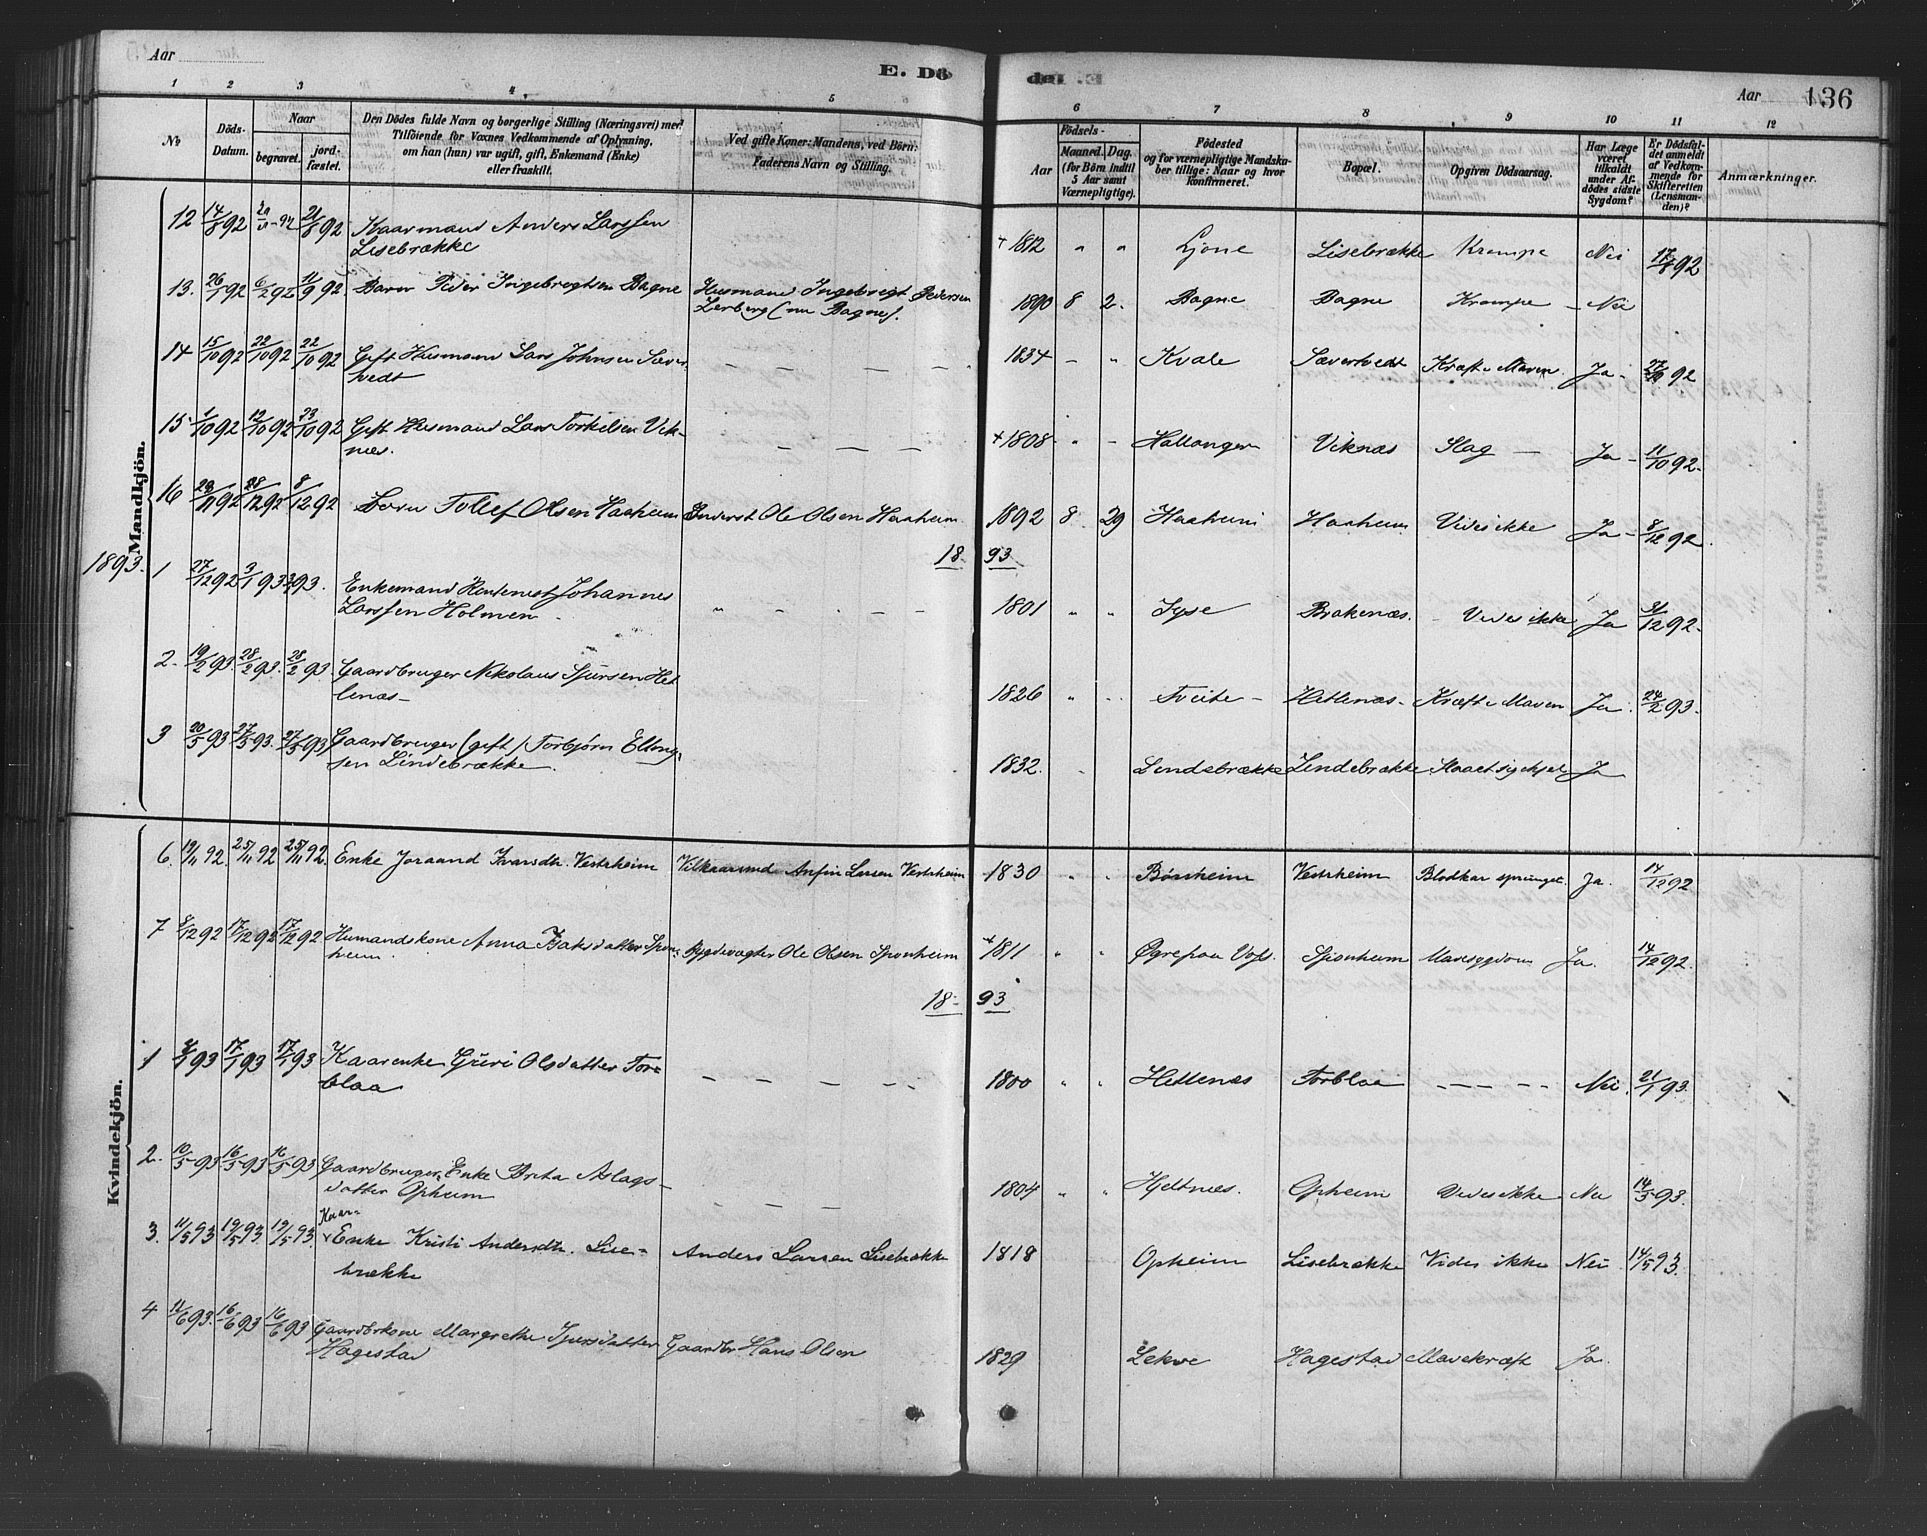 Aar
E. Dö
de. E.
Aar
136
1 2 3 4 5 6 7 8 9 10 11 12
No
Döds-Datum.
Naar
begravet.
jord-fæstet.
Den Dödes fulde Navn og borgerlige Stilling (Næringsvei) med
Tilföiende for Voxnes Vedkommende af Oplysning,
om han (hun) var ugift, gift, Enkemand (Enke)
eller fraskilt.
Ved gifte Koner: Mandens, ved Börn:
Faderens Navn og Stilling.
Födsels-
Aar
Maaned. Dag.
(for Börn indtil
5 Aar samt
Værnepligtige).
Födested
og for værnepligtige Mandska-
ber tillige: Naar og hvor
konfirmeret.
Bopæl.
Opgiven Dödsaarsag.
Har Læge
været
tilkaldt
under Af-
dödes sidste
Sygdom?
Er Dödsfal-
det anmeldt
af Vedkom-
mende for
Skifteretten
(Lensman-
den)?
Anmærkninger.
Mandkjön.
12 14/8 92 21/8 92 Kaarmand Anders Larssen + 1812 " " Ljone Lisebrække Krampe Nei 17/8 92
Lisebrække
13. 26/1 92 6/2 92 11/9 92 Barn Peder Ingebregtsen Bagne Husmand Ingebregt Pedersen 1890 8 2. Bagne Bagne Krampe – Nei
Lerberg (nu Bagne).
14 15/10 92 22/10 92 22/10 92 Gift Husmand Lars Johnsen Sæver- – – – – 1834 – " Kvale Sævertvedt Kræft i Maven. Ja – 27/10 92
tvedt
15 1/10 92 12/10 92 23/10 92 Gift Husmand Lars Torkilsen Vik- – – – + 1808 " – Hallanger Viknæs Slag – Ja – 11/10 92
næs.
16 23/11 92 28/12 92 8/12 92 Barn Tollef Olsen Haaheim Inderst Ole Olsen Haaheim 1892 8 29 Haaheim Haaheim Vides ikke Ja – 8/12 92.
18 93
1893. 1 27/12 92 3/1 93 3/1 93. Enkemand Rentenist Johannes " – – – – 1801 " " Syse Brakenæs. Vides ikke Ja 31/12 92
Larssen Holmen
2. 19/2 93. 28/2 93. 28/2 93. Gaardbruger Nikolaus Sjursen Het- 1826 " – Tveite – Hetlenæs – Kræft i Maven Ja. 24/2 93.
lenæs –
3 20/5 93 27/5 93. 27/5 93 Gaardbruger (gift) Torbjørn Elling- 1832. " Lindebrække Lindebrække Ja
sen Lindebrække.
Kvindekjön.
6. 19/11 92. 25/11 92 25/11 92. Enke Joraand Ivarsdtr. Vestrheim Vilkaarmd Anfin Larsen Vestrheim 1830 " " Børsheim Vestrheim Blodkar sprunget. Ja. 14/12 92
7 8/12 92 17/12 92 17/12 92 Husmandskone Anna Isaksdatter Spon- Bygdevægter Ole Olsen Sponheim + 1811 " " Øgre paa Voss. Sponheim Mavesygdom Ja. 14/12 92.
heim.
18 93
1 7/1 93 17/1 93. 17/1 93 Kaarenke Guri Olsdatter Tor- – – – – 1800 " " Hetlenæs Torblaa – – – – Nei. 21/1 93.
blaa
2. 10/5 93 16/5 93 16/5 93 Gaardbruger, Enke Brita Aslags- – – – 1804 " " Hjeltnæs. Opheim Vides ikke Nei 14/5 93.
datter Opheim
Kaar-
3. 11/5 93 19/5 93. 19/5 93. Enke Kristi Andersdtr. Lise- Anders Larsen Lisebrække 1818 Opheim Lisebrække Vides ikke Nei 14/5 93.
brække
4 11/6 93. 16/6 93 16/6 93 Gaardbrkone Margrethe Sjursdatter Gaardbr Hans Olsen 1829 Lekve Hagestad Mavekræft Ja.
Hagestad